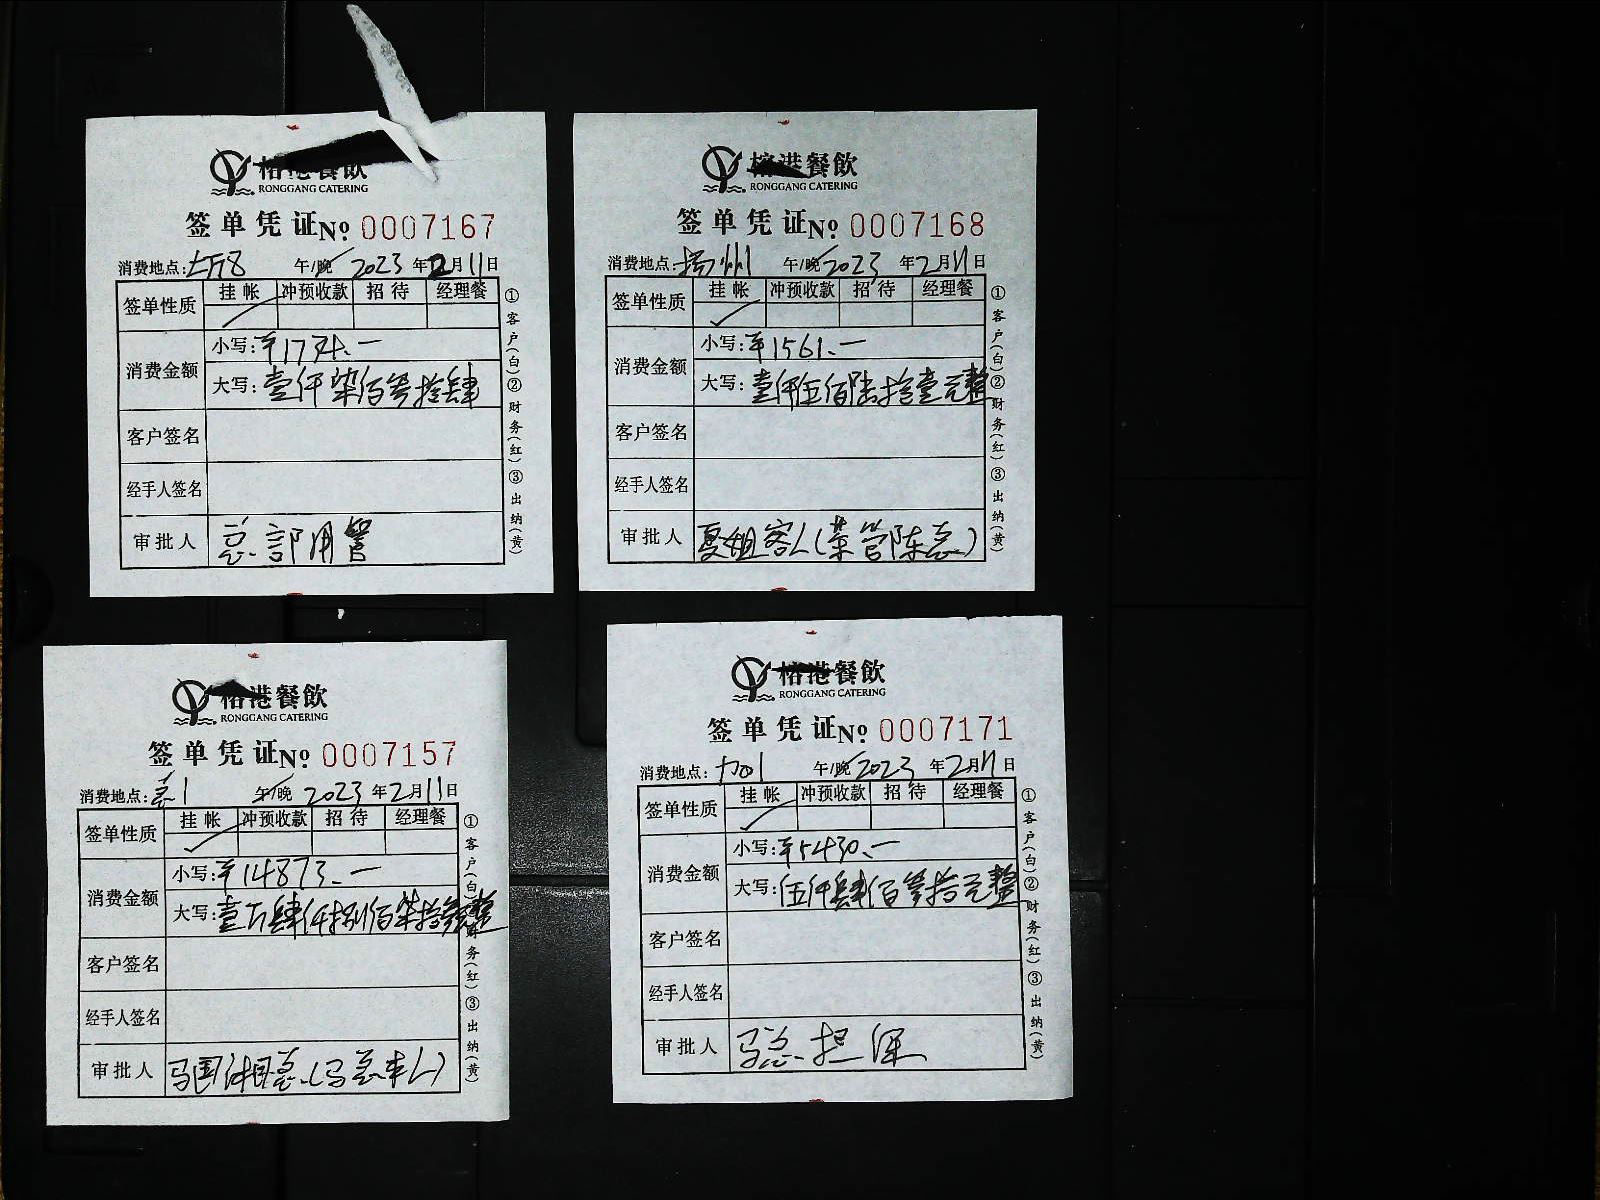 榕港餐飲
RONGGANG CATERING
签单凭证 No. 0007167
消费地点: 午/晚 2023年2月11日
签单性质 挂帐 冲预收款 招待 经理餐
✓
消费金额 小写:¥1734.一
大写:壹仟柒佰叁拾肆
客户签名
经手人签名
审批人 总部用餐
①客户(白)②财务(红)③出纳(黄)
榕港餐飲
RONGGANG CATERING
签单凭证 No. 0007168
消费地点:扬州 午/晚 2023年2月11日
签单性质 挂帐 冲预收款 招待 经理餐
✓
消费金额 小写:¥1561.一
大写:壹仟伍佰陆拾壹元整
客户签名
经手人签名
审批人 夏姐客人(菜管陈总)
①客户(白)②财务(红)③出纳(黄)
榕港餐飲
RONGGANG CATERING
签单凭证 No. 0007157
消费地点: 午/晚 2023年2月11日
签单性质 挂帐 冲预收款 招待 经理餐
✓
消费金额 小写:¥14873.一
大写:壹万肆仟捌佰柒拾叁元整
客户签名
经手人签名
审批人 马国湘总(马总本人)
①客户(白)②财务(红)③出纳(黄)
榕港餐飲
RONGGANG CATERING
签单凭证 No. 0007171
消费地点: 午/晚 2023年2月11日
签单性质 挂帐 冲预收款 招待 经理餐
✓
消费金额 小写:¥5430.一
大写:伍仟肆佰叁拾元整
客户签名
经手人签名
审批人 马总担保
①客户(白)②财务(红)③出纳(黄)